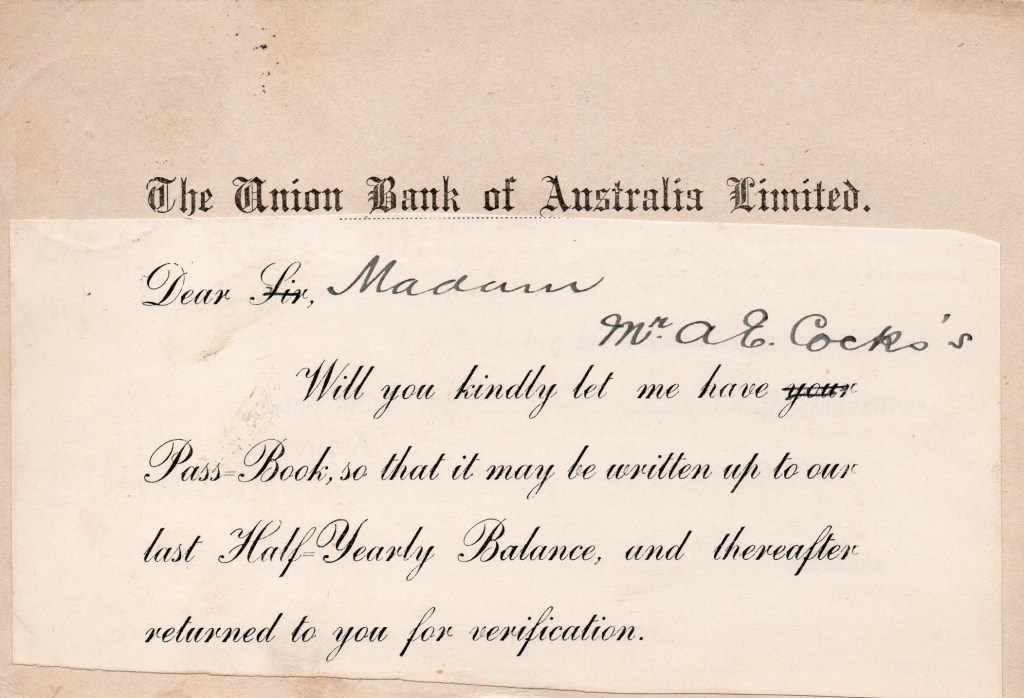 The Union Bank of Australia Limited.
Dear Sir, Madam
Mr. A E. Cocks's
Will you kindly let me have your
Pass=Book, so that it may be written up to our
last Half=Yearly Balance, and thereafter
returned to you for verification.